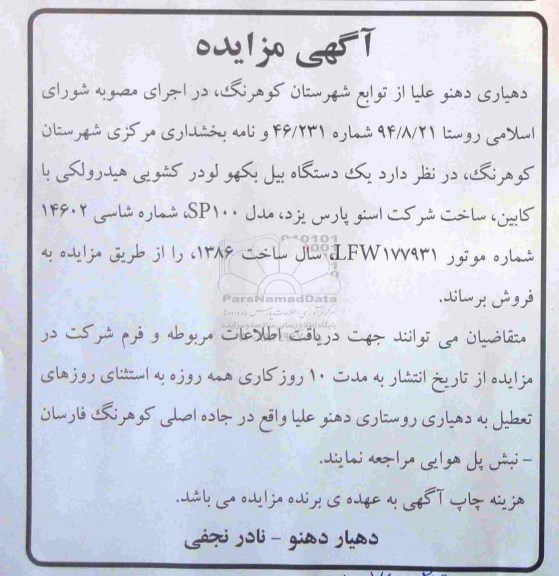 آگهی مزایده
دهیاری دهنو علیا از توابع شهرستان کوهرنگ، در اجرای مصوبه شورای
اسلامی روستا ۹۴/۸/۲۱ شماره ۴۶/۲۳۱ و نامه بخشداری مرکزی شهرستان
کوهرنگ، در نظر دارد یک دستگاه بیل بکهو لودر کشویی هیدرولکی با
کابین، ساخت شرکت اسنو پارس یزد، مدل SP۱۰۰، شماره شاسی ۱۴۶۰۲
شماره موتور LFW۱۷۷۹۳۱، سال ساخت ۱۳۸۶، را از طریق مزایده به
فروش برساند.
ParsNamadData
متقاضیان می توانند جهت دریافت اطلاعات مربوطه و فرم شرکت در
مزایده از تاریخ انتشار به مدت ۱۰ روز کاری همه روزه به استثنای روزهای
تعطیل به دهیاری روستاری دهنو علیا واقع در جاده اصلی کوهرنگ فارسان
- نبش پل هوایی مراجعه نمایند.
هزینه چاپ آگهی به عهده ی برنده مزایده می باشد.
دهیار دهنو - نادر نجفی